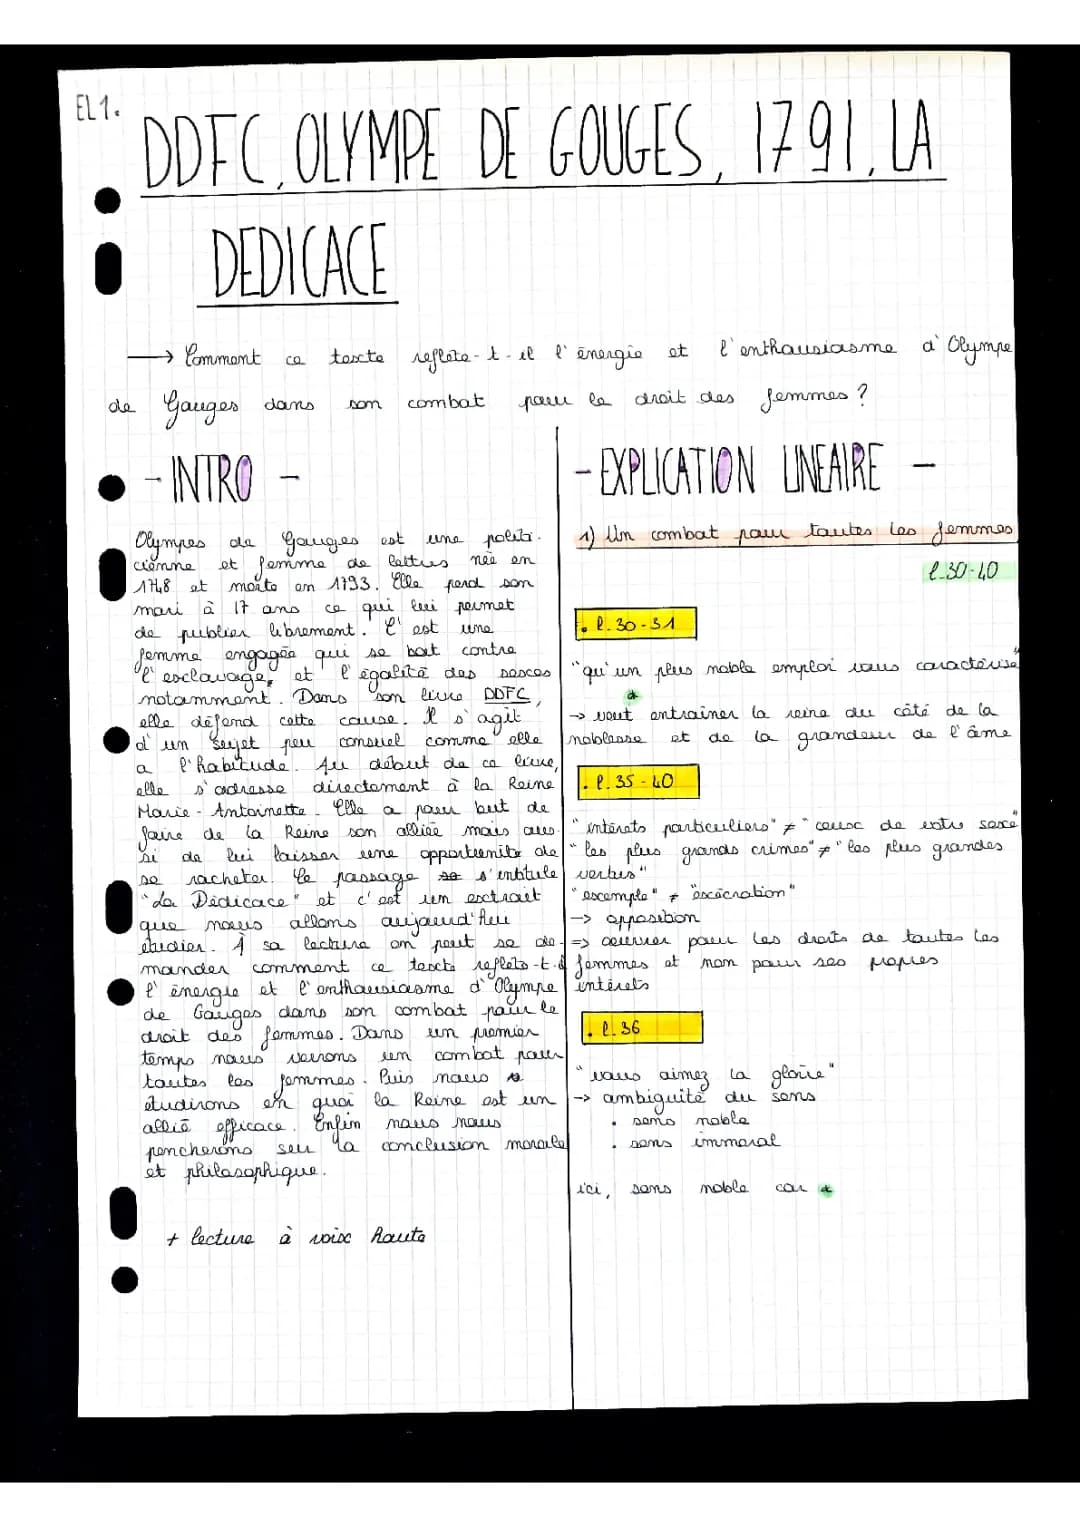 EL 1.
DDFC, OLYMPE DE GOUGES, 1791, LA
DEDICACE
→ Comment ce texte reflète-t-il l'énergie et l'enthousiasme d'Olympe
de Gouges dans son combat pour le droit des femmes ?
- INTRO -
Olympes de Gouges est une politi-
cienne et femme de lettres née en
1748 et morte en 1793. Elle perd son
mari à 17 ans ce qui lui permet
de publier librement. C'est une
femme engagée qui se bat contre
l'esclavage, et l'égalité des sexes
notamment. Dans son livre DDFC,
elle défend cette cause. Il s'agit
d'un sujet peu consuel comme elle
a l'habitude. Au début de ce livre,
elle s'adresse directement à la Reine
Marie-Antoinette. Elle a pour but de
faire de la Reine son alliée mais aus-
si de lui laisser une opportunité de
se racheter. Le passage s'entitule
"La Dédicace" et c'est un extrait
que nous allons aujourd'hui
étudier. À sa lecture on peut se de-
mander comment ce texte reflète-t-il
l'énergie et l'enthousiasme d'Olympe
de Gouges dans son combat pour le
droit des femmes. Dans un premier
temps nous verrons un combat pour
toutes les femmes. Puis nous
étudirons en quoi la Reine est un
allié efficace. Enfin nous nous
pencherons sur la conclusion morale
et philosophique.
+ lecture à voix haute
- EXPLICATION LINEAIRE -
1) Un combat pour toutes les femmes
l.30-40
. l. 30-31
"qu'un plus noble emploi vous caractérise"
*
→ veut entraîner la reine du côté de la
noblesse et de la grandeur de l'âme
. l. 35-40
"intérêts particuliers" ≠ "cause de votre sexe"
"les plus grands crimes" ≠ "les plus grandes
vertus"
"exemple" ≠ "exécration"
→ opposition
=> oeuvrer pour les droits de toutes les
femmes et non pour ses propres
intérêts
. l. 36
"vous aimez la gloire"
→ ambiguité du sens
. sens noble
. sens immoral
ici, sens noble car *